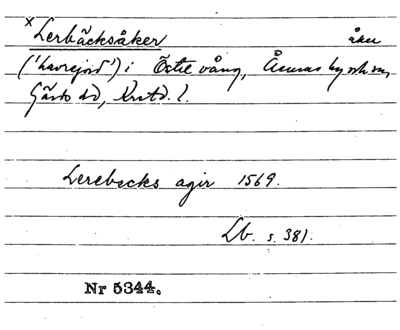 x Lerbäcksåker åker
('havrejord') i Östre vång, Årums by och sn,
Gärds hd, Krstd. l.
Lerebecks agir 1569.
Lb. s. 381.
Nr 5344.